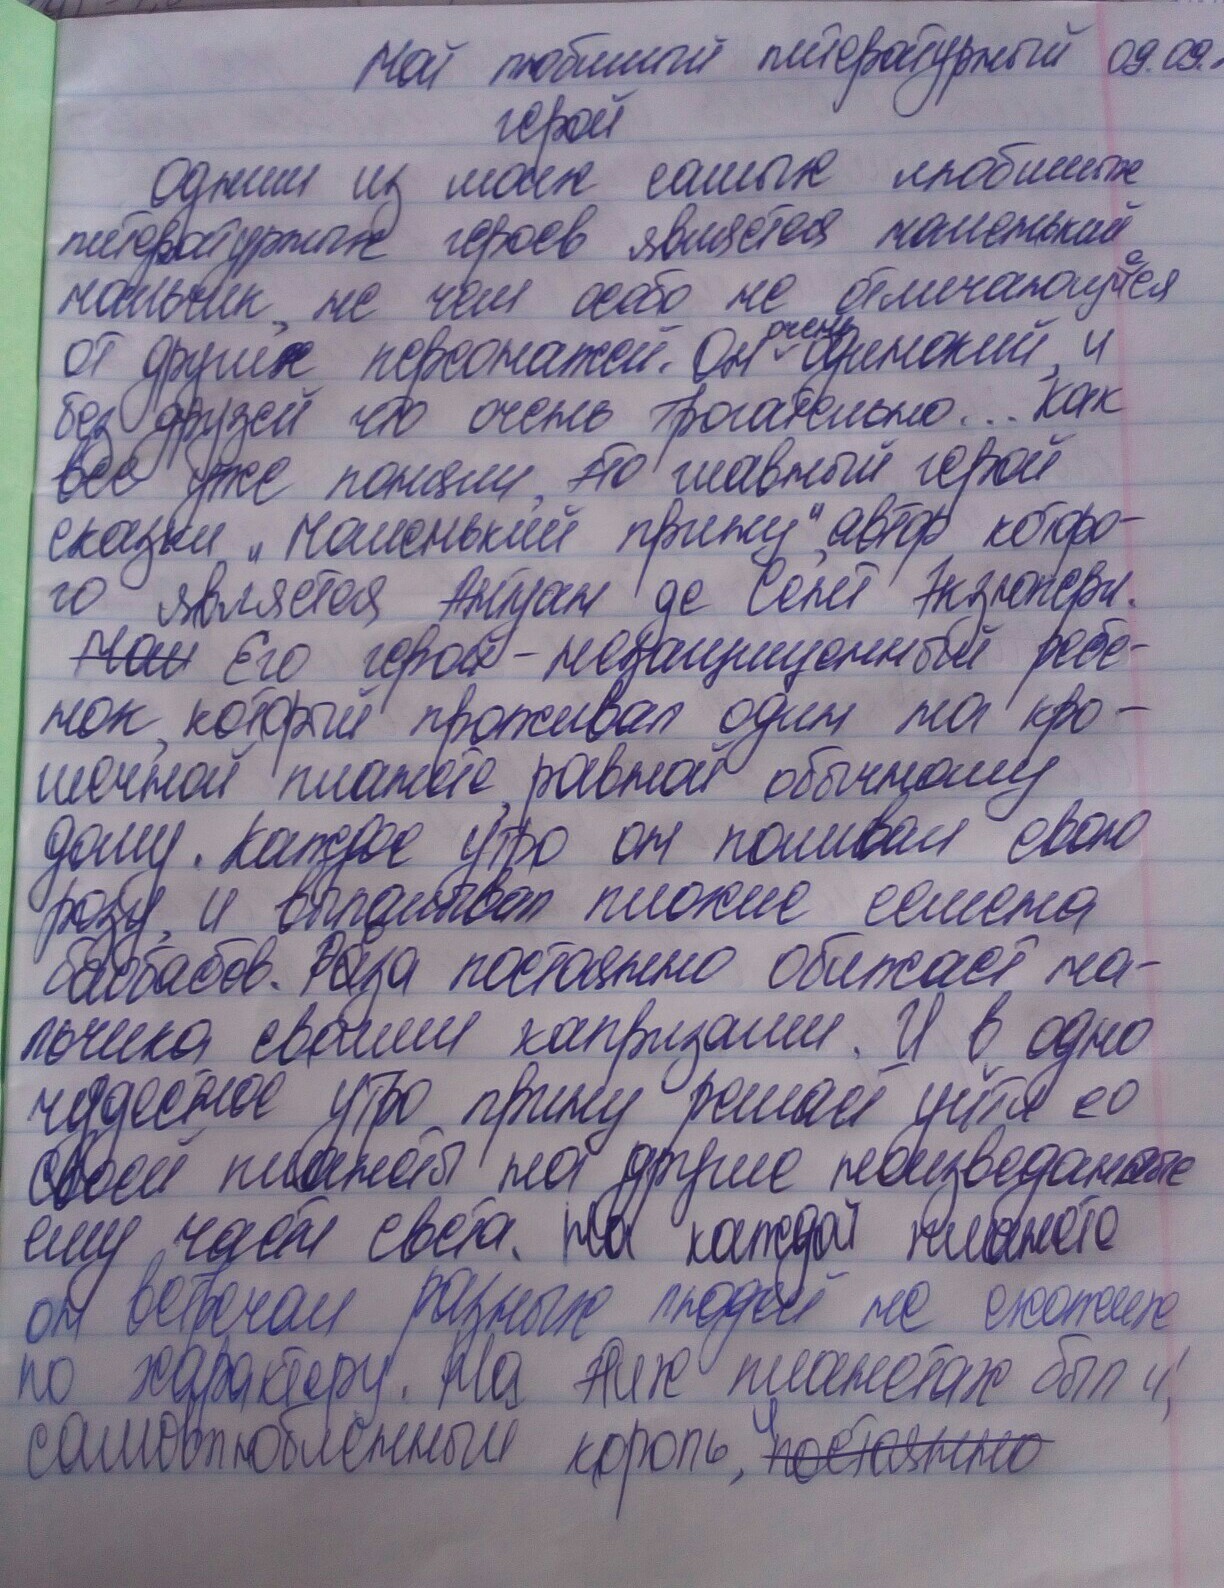 Мой любимый литературный 09.09.
герой
Одним из моих самых любимых
литературных героев является маленький
мальчик, не чем особо не отличающийся
от других персонажей. Он очень одинокий, и
без друзей что очень трогательно... Как
все уже поняли, это главный герой
сказки „Маленький принц", автор которо-
го является Антуан де Сент Экзюпери.
Мал Его герой - незащищенный ребе-
нок, который проживал один на кро-
шечной планете, равной обычному
дому. Каждое утро он поливал свою
розу, и выпалывал плохие семена
баобабов. Роза постоянно обижает ма-
льчика своими капризами. И в одно
чудестное утро принц решает уйти со
своей планеты на другие неизведанные
ему части света. На каждой планете
он встречал разных людей не схожих
по характеру. На этих планетах был и,
самовлюбленный король, и постоянно